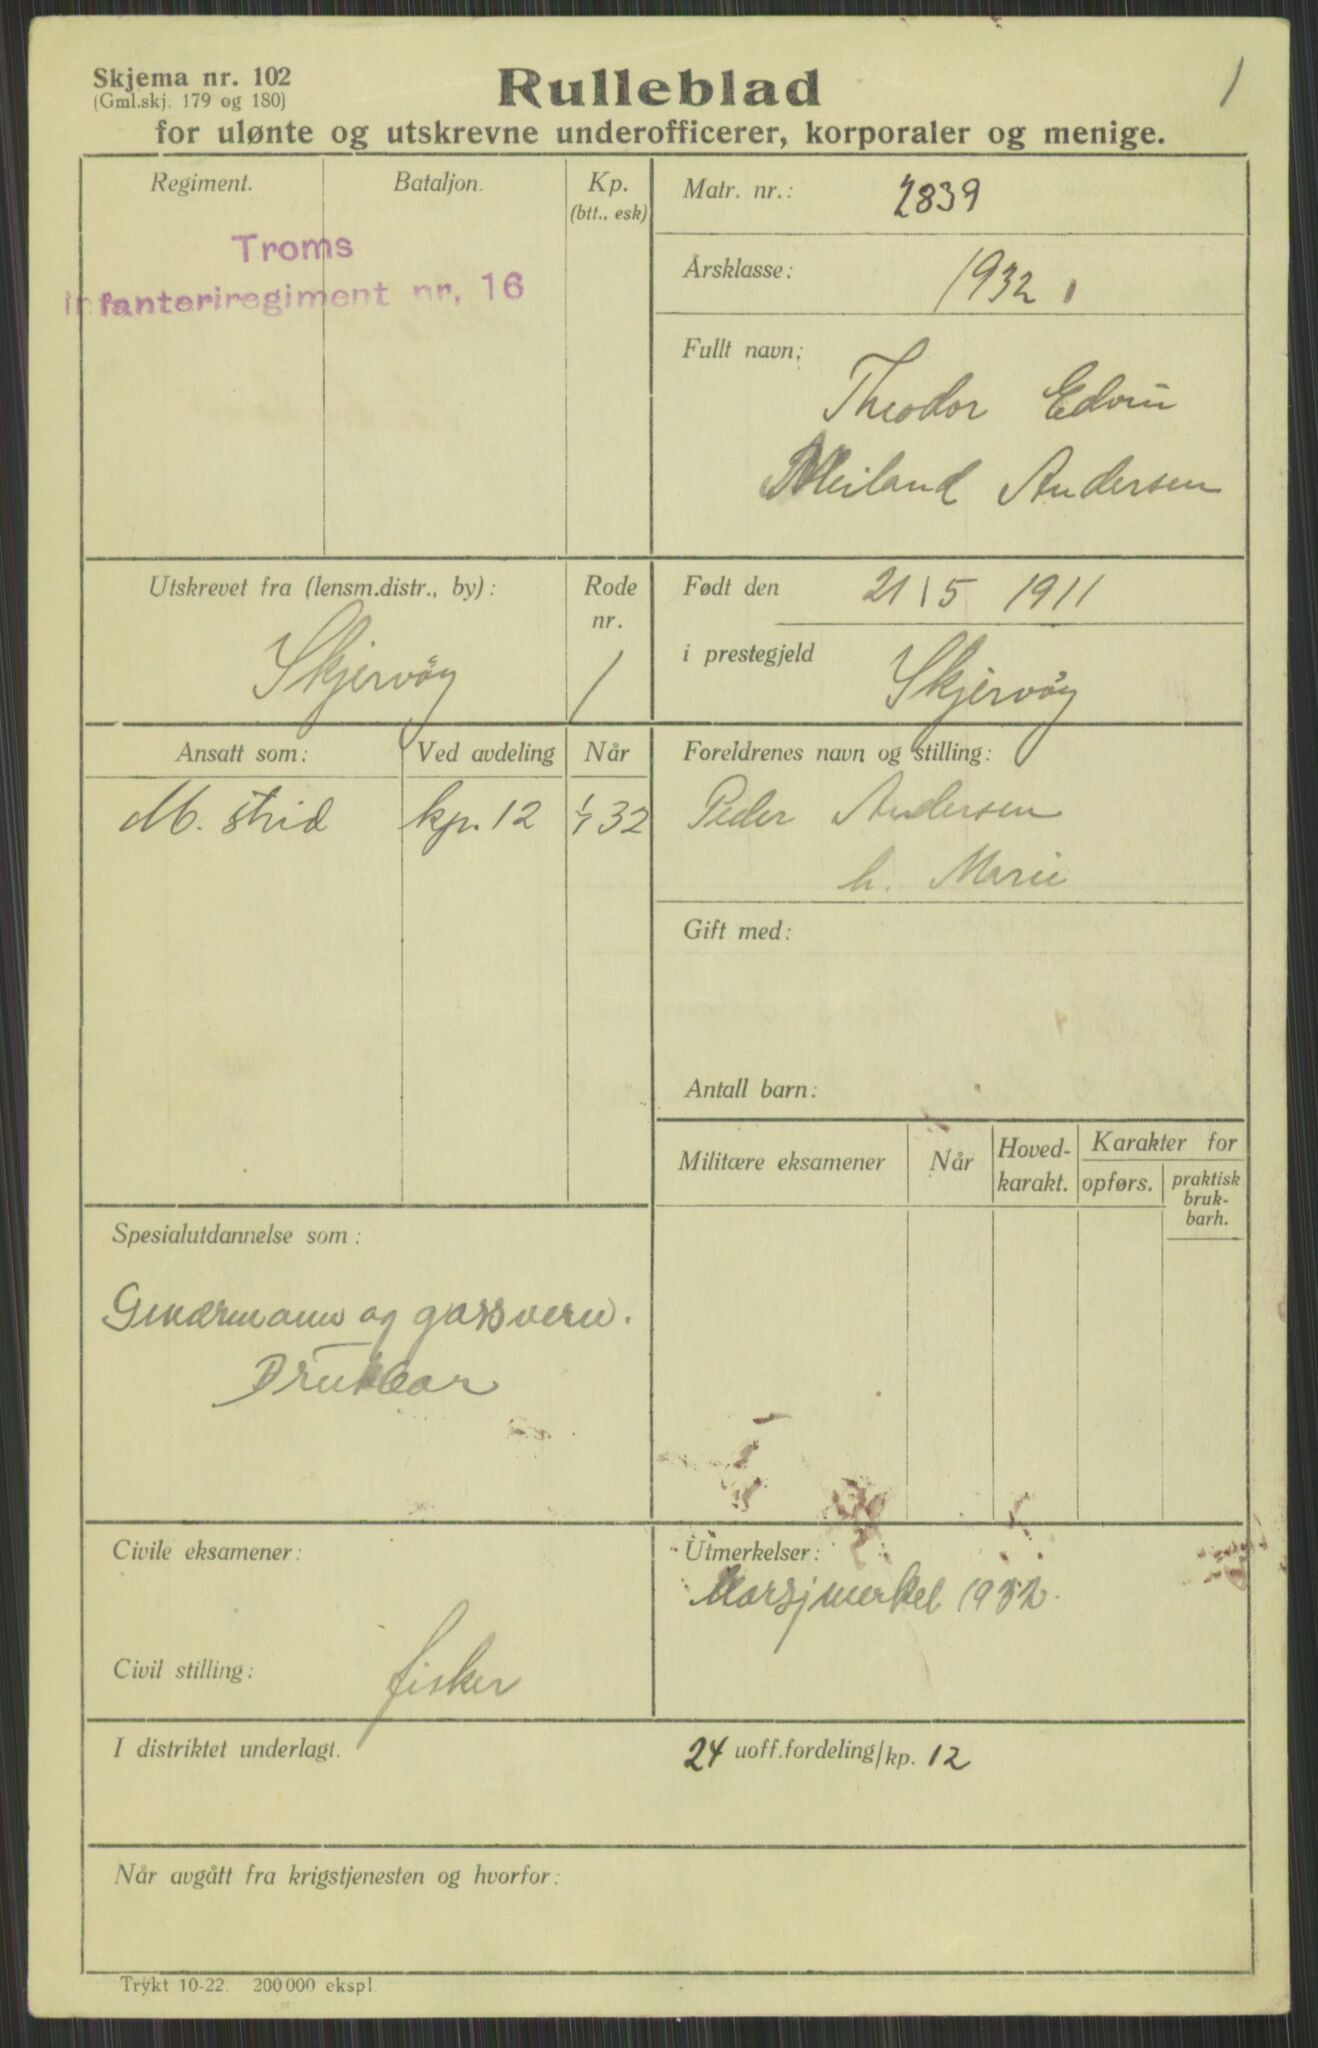 Skjema nr. 102
(Gml.skj. 179 og 180)
Rulleblad
1
for ulønte og utskrevne underofficerer, korporaler og menige.
Regiment.
Bataljon.
Kp.
(btt., esk)
Troms
Infanteriregiment nr. 16
Matr. nr.: 2839
Årsklasse: 1932
Fullt navn: Theodor Edvin
Meiland Andersen
Utskrevet fra (lensm.distr., by):
Skjervöy
Rode
nr.
1
Født den 21/5 1911
i prestegjeld Skjervöy
Ansatt som:
Ved avdeling
Når
M. strid
kp. 12
1/7 32
Foreldrenes navn og stilling:
Peder Andersen
h. Marie
Gift med:
Antall barn:
Militære eksamener
Når
Hoved-
karakt.
Karakter for
opførs.
praktisk
bruk-
barh.
Spesialutdannelse som:
og gassvern.
Brukbar
Civile eksamener:
Civil stilling: fisker
Utmerkelser:
Marsjmerket 1932.
I distriktet underlagt.
24 uoff.fordeling/kp. 12
Når avgått fra krigstjenesten og hvorfor:
Trykt 10-22. 200 000 ekspl.